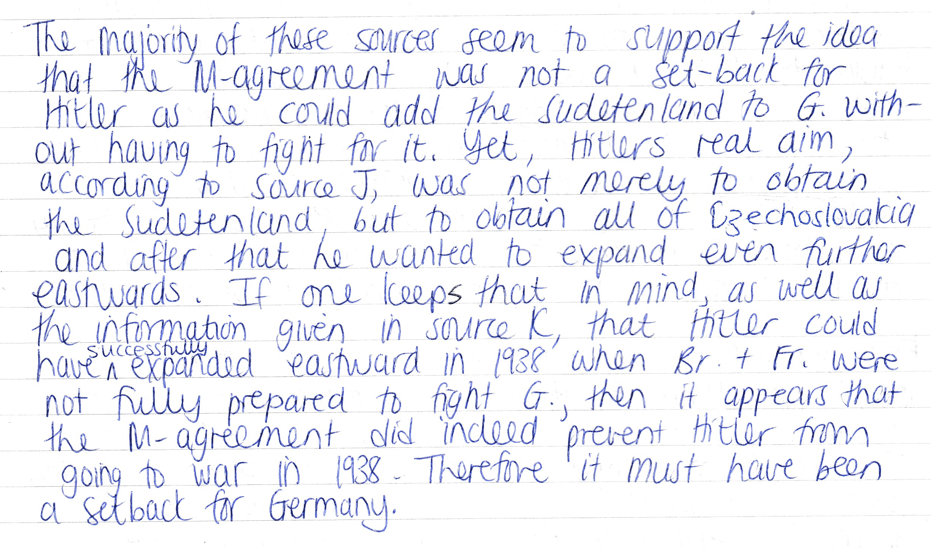 The majority of these sources seem to support the idea
that the M-agreement was not a set-back for
Hitler as he could add the Sudetenland to G. with-
out having to fight for it. Yet, Hitlers real aim,
according to source J, was not merely to obtain
the Sudetenland, but to obtain all of Czechoslovakia
and after that he wanted to expand even further
eastwards. If one keeps that in mind, as well as
the information given in source K, that Hitler could
have successfully expanded eastward in 1938 when Br. + Fr. were
not fully prepared to fight G., then it appears that
the M-agreement did indeed prevent Hitler from
going to war in 1938. Therefore it must have been
a setback for Germany.